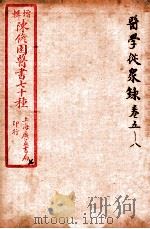 醫學從衆錄 卷五—八
增輯
陳修園醫書七十種
上海廣益書局
印行